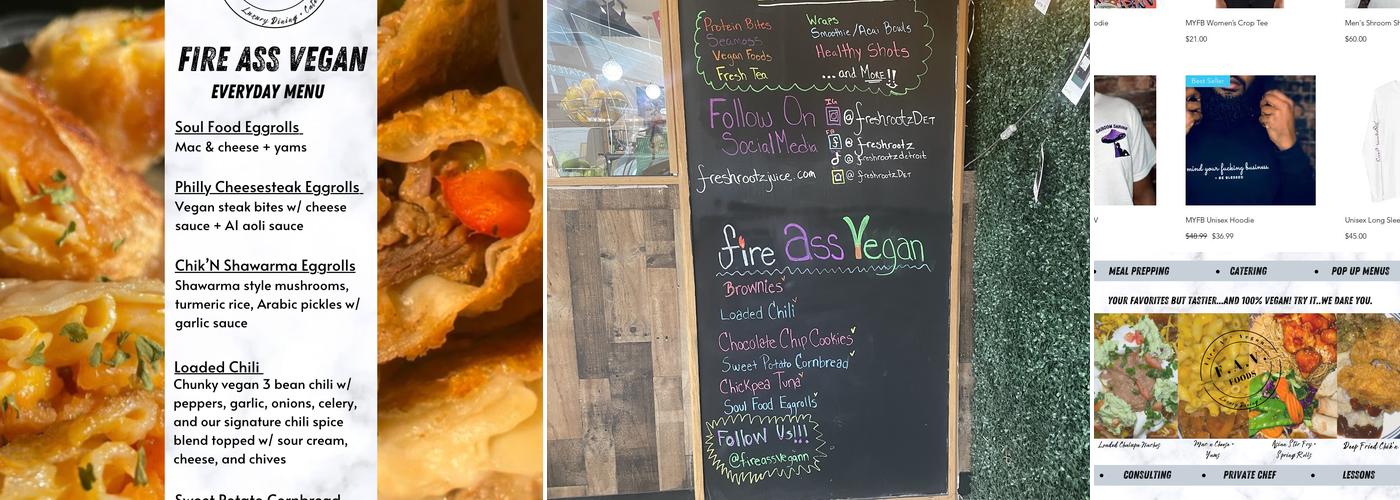 Luxury Dining
FIRE ASS VEGAN
EVERYDAY MENU
Soul Food Eggrolls
Mac & cheese + yams
Philly Cheesesteak Eggrolls
Vegan steak bites w/ cheese
sauce + AI aoli sauce
Chik'N Shawarma Eggrolls
Shawarma style mushrooms,
turmeric rice, Arabic pickles w/
garlic sauce
Loaded Chili
Chunky vegan 3 bean chili w/
peppers, garlic, onions, celery,
and our signature chili spice
blend topped w/ sour cream,
cheese, and chives
Sweet Potato Cornbread
Protein Bites
Seamoss
Vegan Foods
Fresh Tea
Wraps
Smoothie/Acai Bowls
Healthy Shots
... and More!!
Follow On
Social Media
IG
@freshrootzDET
FB
@ freshrootz
@ freshrootzdetroit
@ freshrootzDET
freshrootzjuice.com
fire Ass Vegan
Brownies
Loaded Chili
Chocolate Chip Cookies
Sweet Potato Cornbread
Chickpea Tuna
Soul Food Eggrolls
Follow Us!!!
@fireassvegann
odie
MYFB Women's Crop Tee
$21.00
Men's Shroom Sh
$60.00
Best Seller
SHROOM SHRINE
mind your fucking business
+ BE BLESSED
V
MYFB Unisex Hoodie
$48.99 $36.99
Unisex Long Slee
$45.00
• MEAL PREPPING • CATERING • POP UP MENUS
YOUR FAVORITES BUT TASTIER...AND 100% VEGAN! TRY IT..WE DARE YOU.
Fire Ass Vegan
F.A.V.
FOODS
Loaded Chalupa Nachos
Mac n Cheese +
Yams
Asian Stir Fry +
Spring Rolls
Deep Fried Chik'n
• CONSULTING • PRIVATE CHEF • LESSONS